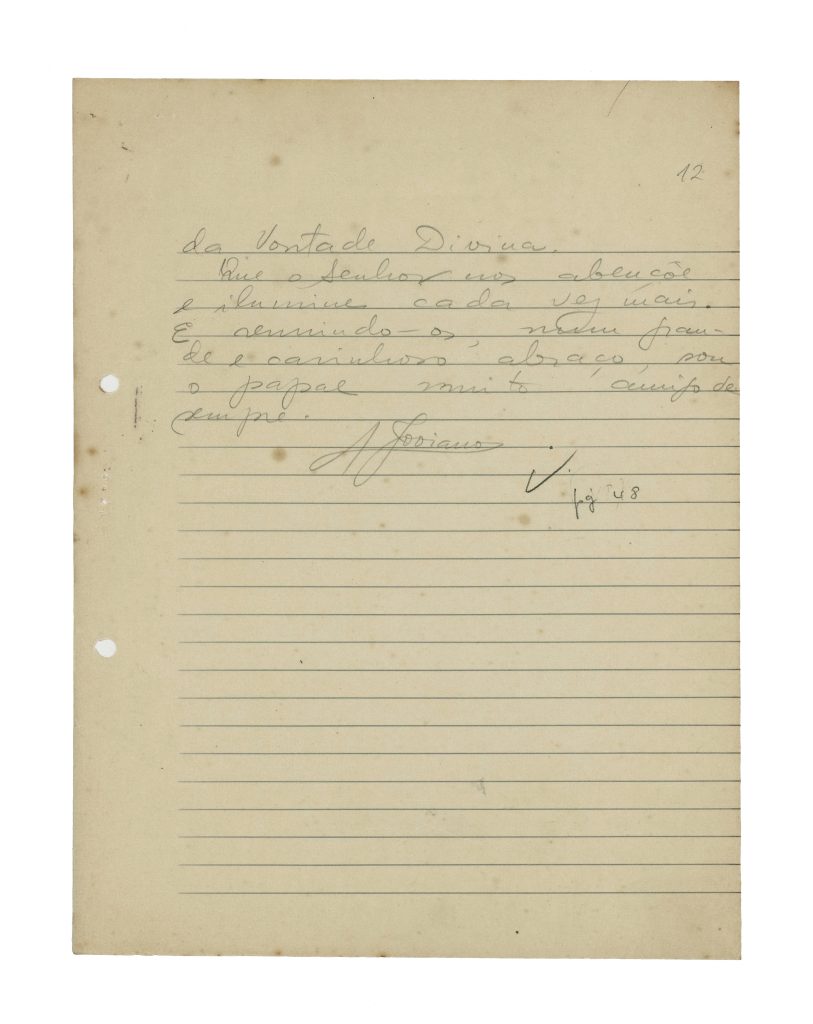 12
da Vontade Divina.
Que o Senhor nos abençõe
e ilumine cada vez mais.
E reunindo-os, num gran-
de e carinhoso abraço, sou
o papae muito amigo de
sempre.
A Joviano
pg 48